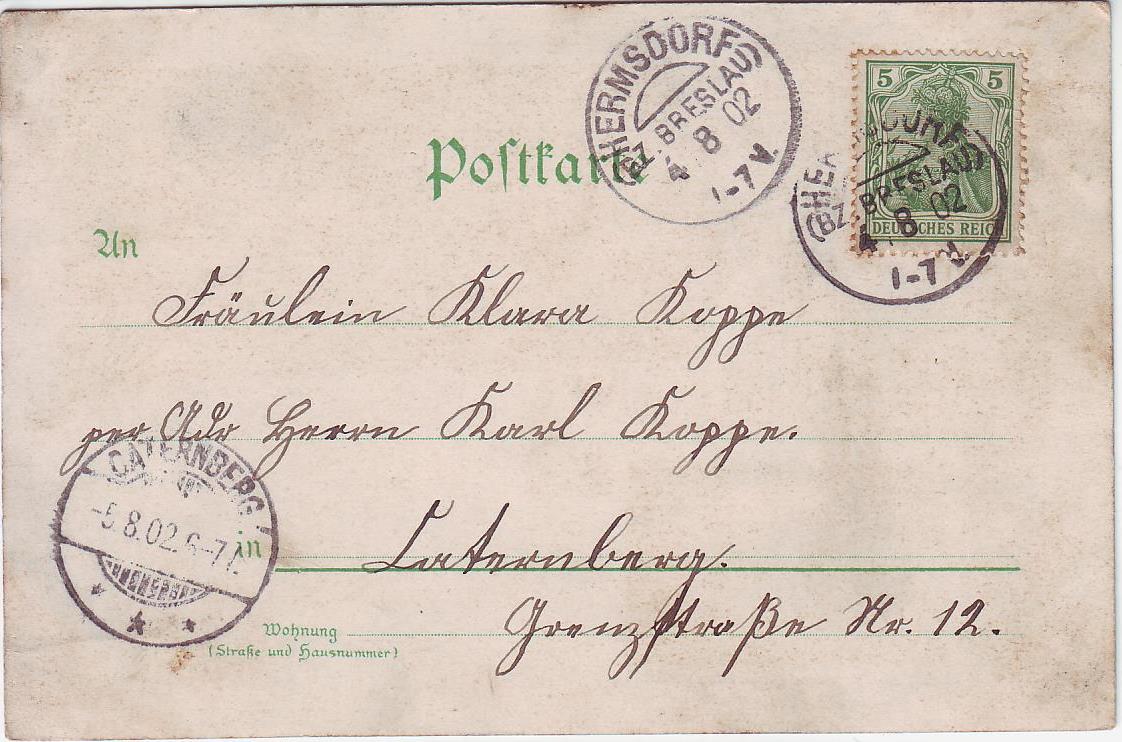 Postkarte
HERMSDORF
(BZ. BRESLAU)
4. 8 02
1-7 V.
5 5
DEUTSCHES REICH
(BZ. BRESLAU)
4. 8 02
1-7 V.
An
Fräulein Klara Koppe
per Adr Herrn Karl Koppe.
CATERNBERG
-5.8.02.6-7
in Caternberg.
Grenzstraße Nr. 12.
Wohnung
(Straße und Hausnummer)